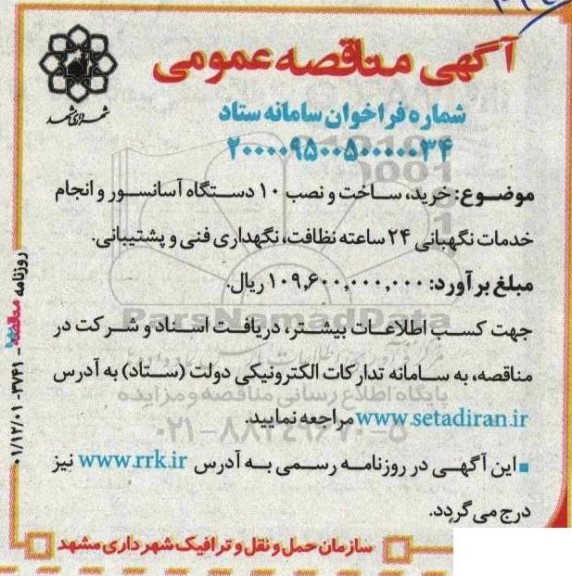 آگهی مناقصه عمومی
شهرداری مشهد
شماره فراخوان سامانه ستاد
۲۰۰۰۰۹۵۰۰۵۰۰۰۰۰۳۴
موضوع: خرید، ساخت و نصب ۱۰ دستگاه آسانسور و انجام
خدمات نگهبانی ۲۴ ساعته نظافت، نگهداری فنی و پشتیبانی.
مبلغ برآورد: ۱۰۹,۶۰۰,۰۰۰,۰۰۰ ریال.
ParsNamadData
جهت کسب اطلاعات بیشتر، دریافت اسناد و شرکت در
مناقصه، به سامانه تدارکات الکترونیکی دولت (ستاد) به آدرس
پایگاه اطلاع رسانی مناقصه و مزایده
www.setadiran.ir مراجعه نمایید.
۰۲۱-۸۸۳۴۹۶۷۰-۵
این آگهی در روزنامه رسمی به آدرس www.rrk.ir نیز
درج می گردد.
سازمان حمل و نقل و ترافیک شهرداری مشهد
روزنامه مناقصه - ۳۷۴۱ - ۰۱/۱۲/۰۱